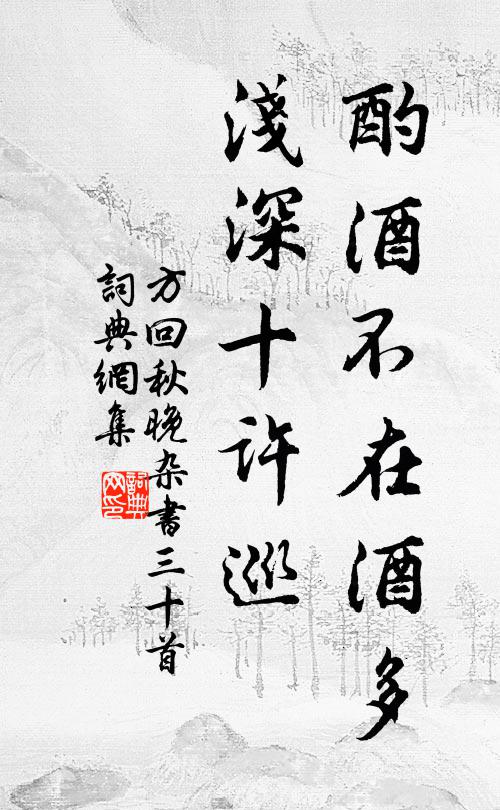 酌酒不在酒多
淺深十許巡
方回秋晚杂書三十首
詞典網集
詞典网印